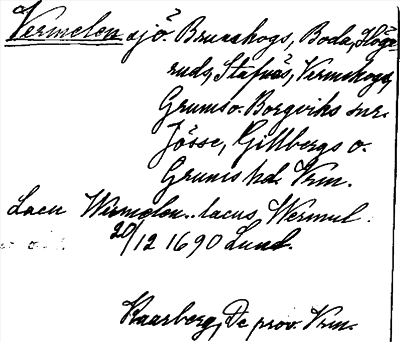 Vermelen sjö. Brunskogs, Boda, Höge
ruds, Stafnäs, Värmskogs,
Grums o. Borgviks snr.
Jösse, Gillbergs o.
Grums hd. Vrm.
Lacu Wermelen.. lacus, Wermul.
20/12 1690 Lund.
Kaarberg, De prov. Vrm.